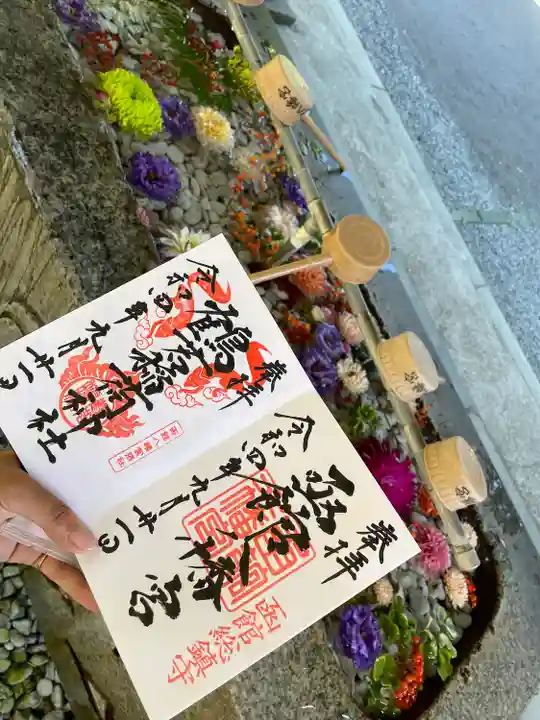 奉拝
函館八幡宮
令和四年九月廿一日
函館総鎮守
奉拝
鶴若稲荷神社
令和四年九月廿一日
函館八幡宮末社